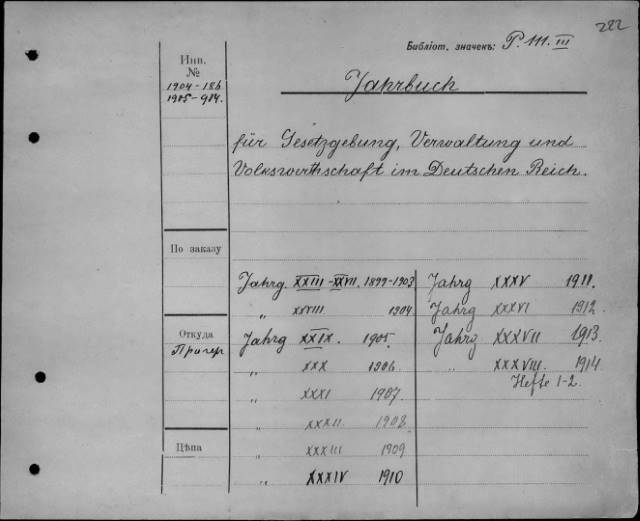 222
Библіот. значекъ: P. III. III
Инв.
№
1904-186
1905-984.
Jahrbuch
für Gesetzgebung, Verwaltung und
Volkswirthschaft im Deutschen Reich.
По заказу
Откуда
Прагер
Цѣна
Jahrg. XXIII-XXVII. 1899-1903
„ XXVIII. 1904
Jahrg XXIX. 1905.
„ XXX 1906
„ XXXI 1907
„ XXXII. 1908.
„ XXXIII 1909
„ XXXIV 1910
Jahrg XXXV 1911.
Jahrg XXXVI 1912.
Jahrg XXXVII 1913.
„ XXXVIII. 1914.
Hefte 1-2.